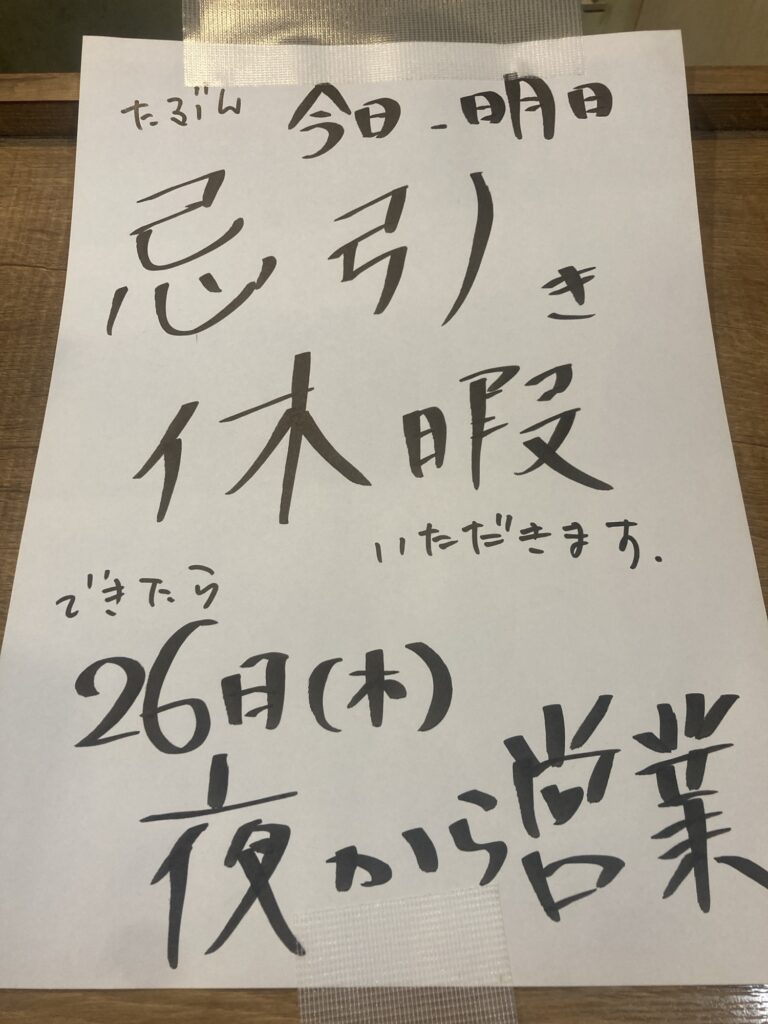 たぶん 今日-明日
忌引き
休暇
いただきます.
できたら
26日(木)
夜から営業